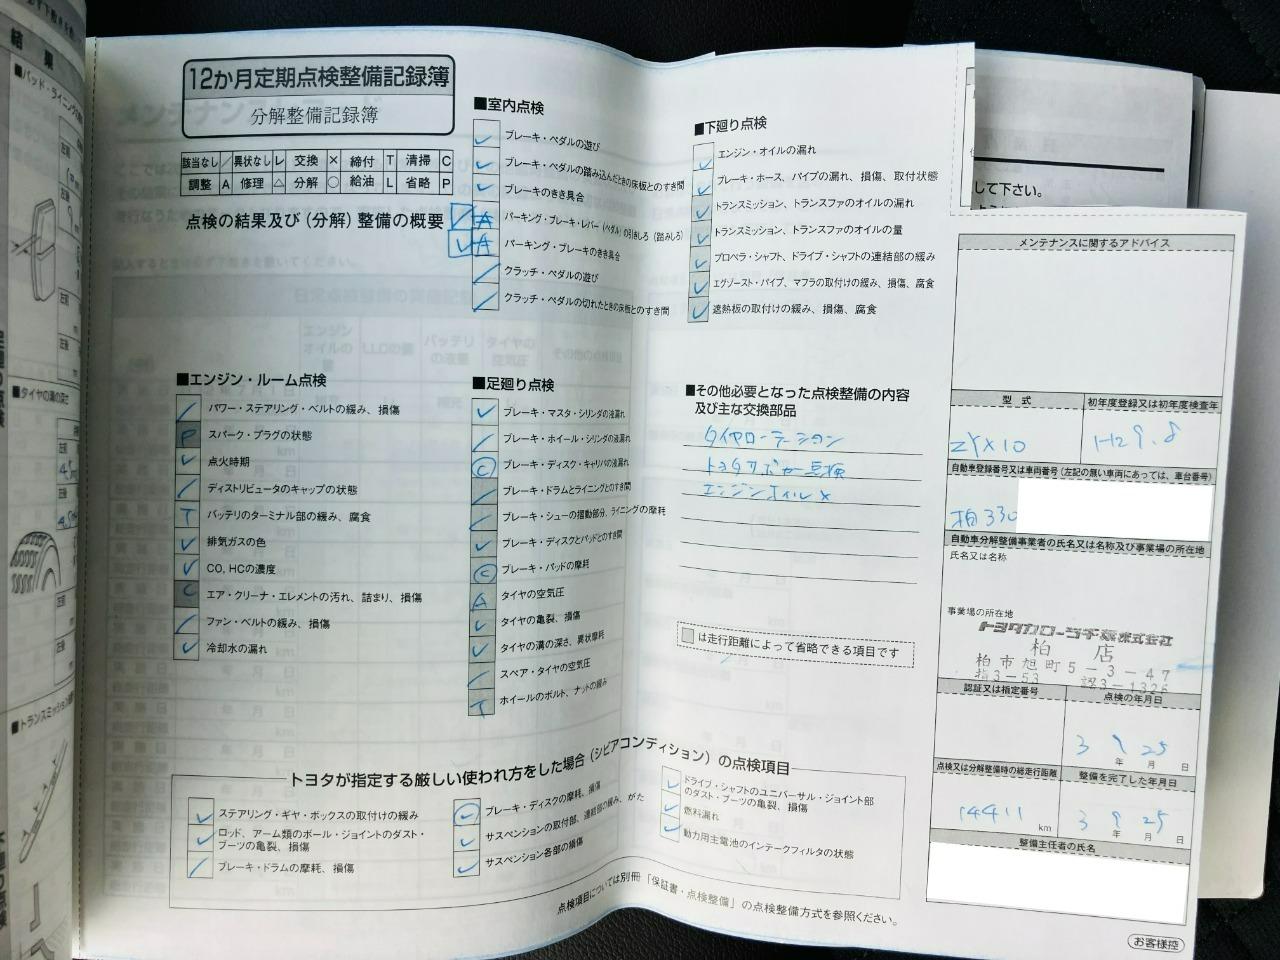 12か月定期点検整備記録簿
分解整備記録簿
該当なし ／ 異状なし レ 交換 × 締付 T 清掃 C
調整 A 修理 △ 分解 ○ 給油 L 省略 P
点検の結果及び(分解)整備の概要
■室内点検
レ ブレーキ・ペダルの遊び
レ ブレーキ・ペダルの踏み込んだときの床板とのすき間
レ ブレーキのきき具合
パーキング・ブレーキ・レバー(ペダル)の引きしろ(踏みしろ)
レ A パーキング・ブレーキのきき具合
／ クラッチ・ペダルの遊び
／ クラッチ・ペダルの切れたときの床板とのすき間
■下廻り点検
レ エンジン・オイルの漏れ
レ ブレーキ・ホース、パイプの漏れ、損傷、取付状態
レ トランスミッション、トランスファのオイルの漏れ
レ トランスミッション、トランスファのオイルの量
レ プロペラ・シャフト、ドライブ・シャフトの連結部の緩み
レ エグゾースト・パイプ、マフラの取付けの緩み、損傷、腐食
レ 遮熱板の取付けの緩み、損傷、腐食
■エンジン・ルーム点検
／ パワー・ステアリング・ベルトの緩み、損傷
P スパーク・プラグの状態
レ 点火時期
／ ディストリビュータのキャップの状態
T バッテリのターミナル部の緩み、腐食
レ 排気ガスの色
レ CO, HCの濃度
C エア・クリーナ・エレメントの汚れ、詰まり、損傷
／ ファン・ベルトの緩み、損傷
レ 冷却水の漏れ
■足廻り点検
レ ブレーキ・マスタ・シリンダの液漏れ
／ ブレーキ・ホイール・シリンダの液漏れ
Ⓒ ブレーキ・ディスク・キャリパの液漏れ
／ ブレーキ・ドラムとライニングとのすき間
／ ブレーキ・シューの摺動部分、ライニングの摩耗
レ ブレーキ・ディスクとパッドとのすき間
Ⓒ ブレーキ・パッドの摩耗
A タイヤの空気圧
レ タイヤの亀裂、損傷
レ タイヤの溝の深さ、異状摩耗
／ スペア・タイヤの空気圧
T ホイールのボルト、ナットの緩み
■その他必要となった点検整備の内容
及び主な交換部品
タイヤローテーション
エンジンオイル ×
は走行距離によって省略できる項目です
トヨタが指定する厳しい使われ方をした場合(シビアコンディション)の点検項目
レ ステアリング・ギヤ・ボックスの取付けの緩み
レ ロッド、アーム類のボール・ジョイントのダスト・
ブーツの亀裂、損傷
／ ブレーキ・ドラムの摩耗、損傷
ブレーキ・ディスクの摩耗、損傷
レ サスペンションの取付部、連結部の緩み、がた
レ サスペンション各部の損傷
レ ドライブ・シャフトのユニバーサル・ジョイント部
のダスト・ブーツの亀裂、損傷
レ 燃料漏れ
レ 動力用主電池のインテークフィルタの状態
点検項目については別冊「保証書・点検整備」の点検整備方式を参照ください。
して下さい。
メンテナンスに関するアドバイス
型式
初年度登録又は初年度検査年
ZYX10
H29.8
自動車登録番号又は車両番号(左記の無い車両にあっては、車台番号)
柏330
自動車分解整備事業者の氏名又は名称及び事業場の所在地
氏名又は名称
事業場の所在地
トヨタカローラ千葉株式会社
柏 店
柏市旭町5-3-47
指3-53 認3-1325
認証又は指定番号
点検の年月日
3 9 25
年 月 日
点検又は分解整備時の総走行距離
整備を完了した年月日
14411 km
3 9 25
年 月 日
整備主任者の氏名
お客様控
結果